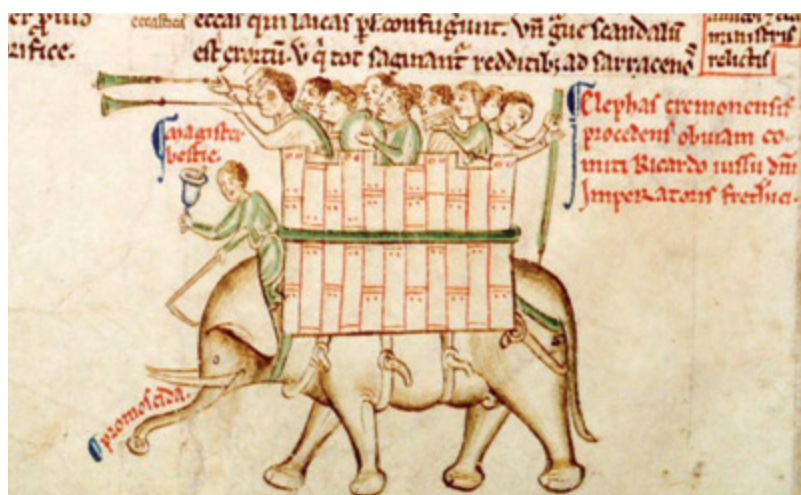 eccas qui laicas pł confugiunt. Vñ g̃ue scandalũ
est exortũ. V q̉ tot saginant᷑ redditibȝ ad sarracenoꝝ
rifice.
ministris
relictis
magister
bestie.
Elephas cremonensis
procedens obuiam co-
miti Ricardo iussu dñi
Imperatoris fretherici.
promoscida.